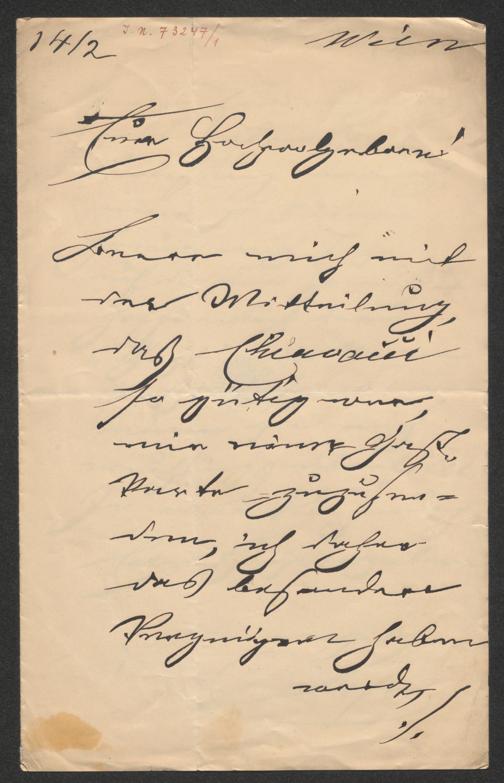 14/2 I. N. 73247/1 Wien
Euer Hochwolgeboren!
Beeere mich mit
der Mitteilung,
daß Chiavacci
so gütig war,
mir eine Gast-
karte zuzusen=
den, ich daher
das besondere
Vergnügen haben
werde,
./.